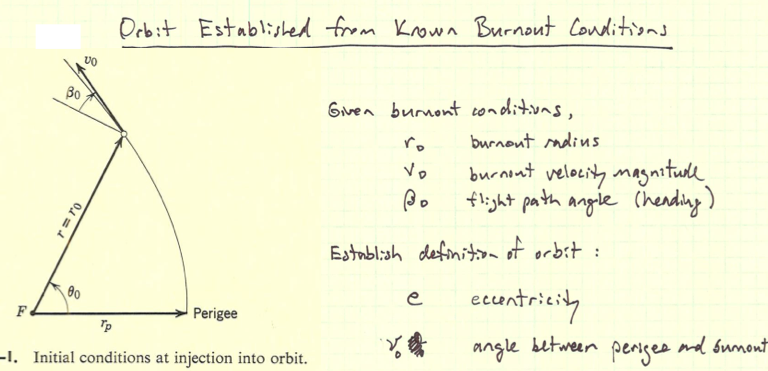 Orbit Established from Known Burnout Conditions
v0
β0
r = r0
θ0
F
rp
Perigee
-1. Initial conditions at injection into orbit.
Given burnout conditions,
r0 burnout radius
v0 burnout velocity magnitude
β0 flight path angle (heading)
Establish definition of orbit :
e eccentricity
ν0 angle between perigee and burnout